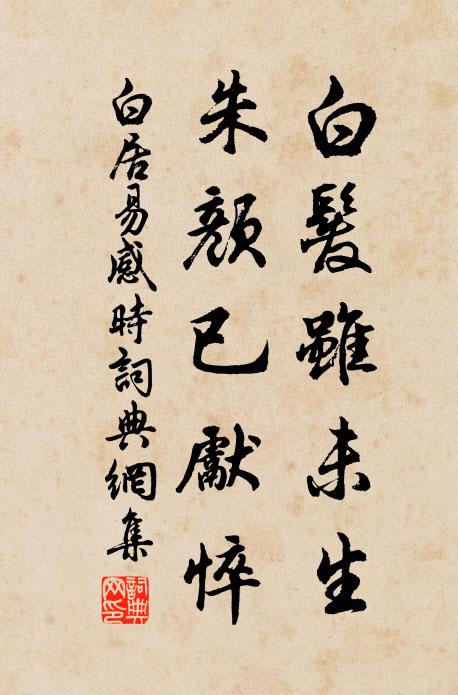 白髮雖未生
朱顔已獻悴
白居易感時詞典網集
詞典
网印